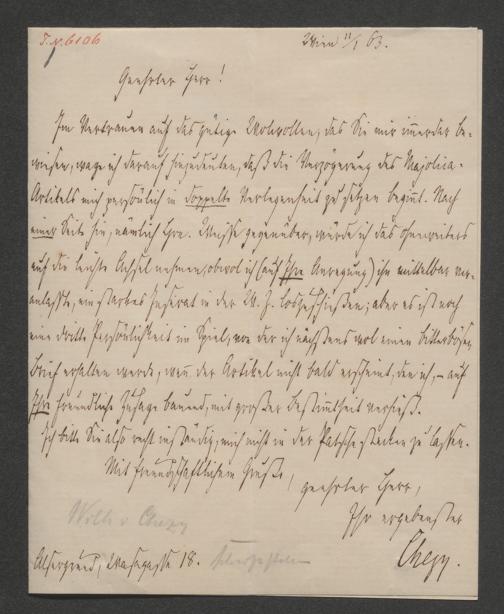 I.N. 6106
Wien 11/1 63.
Geehrter Herr!
Im Vertrauen auf das gütige Wohlwollen, das Sie mir immerdar be-
wiesen, wage ich darauf hinzudeuten, daß die Verzögerung des Majolica-
Artikels mich persönlich in doppelte Verlegenheit zu setzen beginnt. Nach
einer Seite hin, nämlich gegenüber, würde ich das ohneweiters
auf die leichte Achsel nehmen, obwol ich (auf Ihre Anregung) ihn mittelbar ver-
anlaßte, ein starkes Inserat in der W. Z. loszuschießen; aber es ist noch
eine dritte Persönlichkeit im Spiel, von der ich nächstens wol einen bitterbösen
Brief erhalten werde, wenn der Artikel nicht bald erscheint, den ich, – auf
Ihre freundliche Zusage bauend, mit großer Bestimmtheit verhieß.
Ich bitte Sie also recht inständig, mich nicht in der Patsche stecken zu lassen.
Mit freundschaftlichem Gruße,
geehrter Herr,
Ihr ergebenster
Wilh v Chezy
Chezy.
Alsergrund, 18.